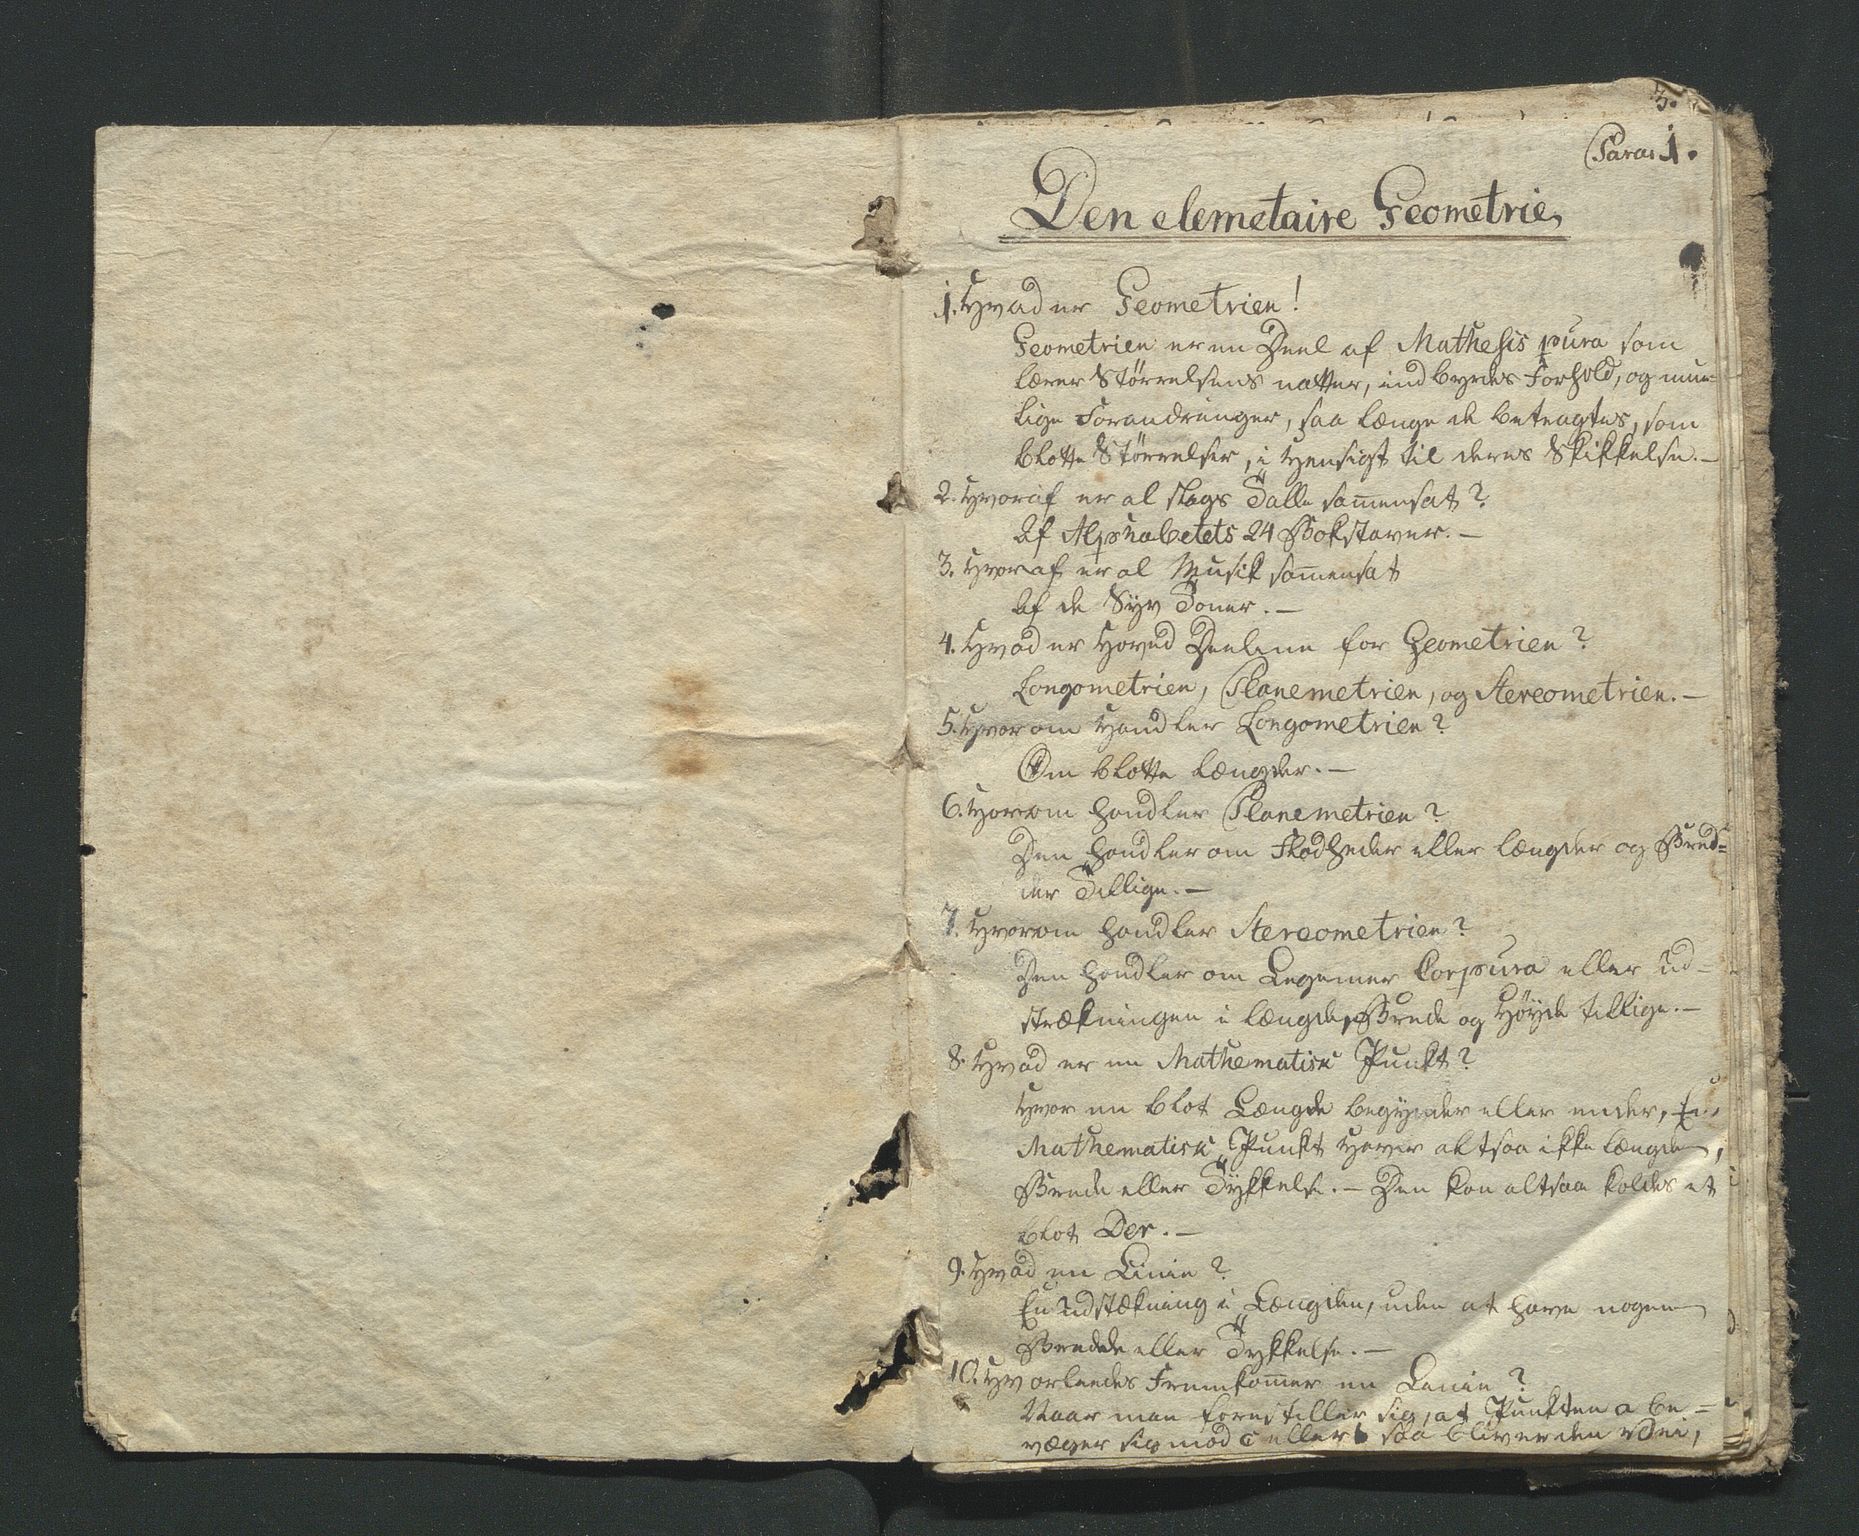 3.
Para: 1.
Den elemetaire Geometrie,
1. Hvad er Geometrien!
Geometrien er en Deel af Mathesis pura som
lærer Størrelsens natter, indbyrdes Forhold, og mue=
lige Forandringer, saa længe de betragtes, som
blotte Størrelser, i Hensigt til deres Skikkelse.—
2. Hvoraf er al slags Talle sam̅ensat?
Af Alphabetets 24 Bokstaver.—
3. Hvoraf er al Musik som̅ensat
Af de Syv Toner.—
4. Hvad er Hoved Deelene for Geometrien?
Longometrien, Planemetrien, og Stereometrien.—
5. Hvorom Handler Longometrien?
Om blotte længder.—
6. Hvorom handler Planemetrien?
Den handler om Fladheder eller længder og Bred=
der Tillige.—
7. Hvorom handler Stereometrien?
Den handler om Legemer Corpura eller ud=
strækningen i længde, Brede og Høyde tillige.—
8. Hvad er en Mathematisk Punkt?
Hvor en blot Længde begynder eller ender, En
Mathematisk Punkt Haver altsaa ikke længden,
Brede eller Tykkelse.— Den kan altsaa kaldes et
blot Der.—
9. Hvad en Linie?
En Udstækning i Længden, uden at have nogen
Bredde eller Tykkelse.—
10. Hvorleedes Fremkom̅er en Linie?
Naar man forestiller sig, at Punkten a be=
væger sig mod c eller b saa bliver den Vei,